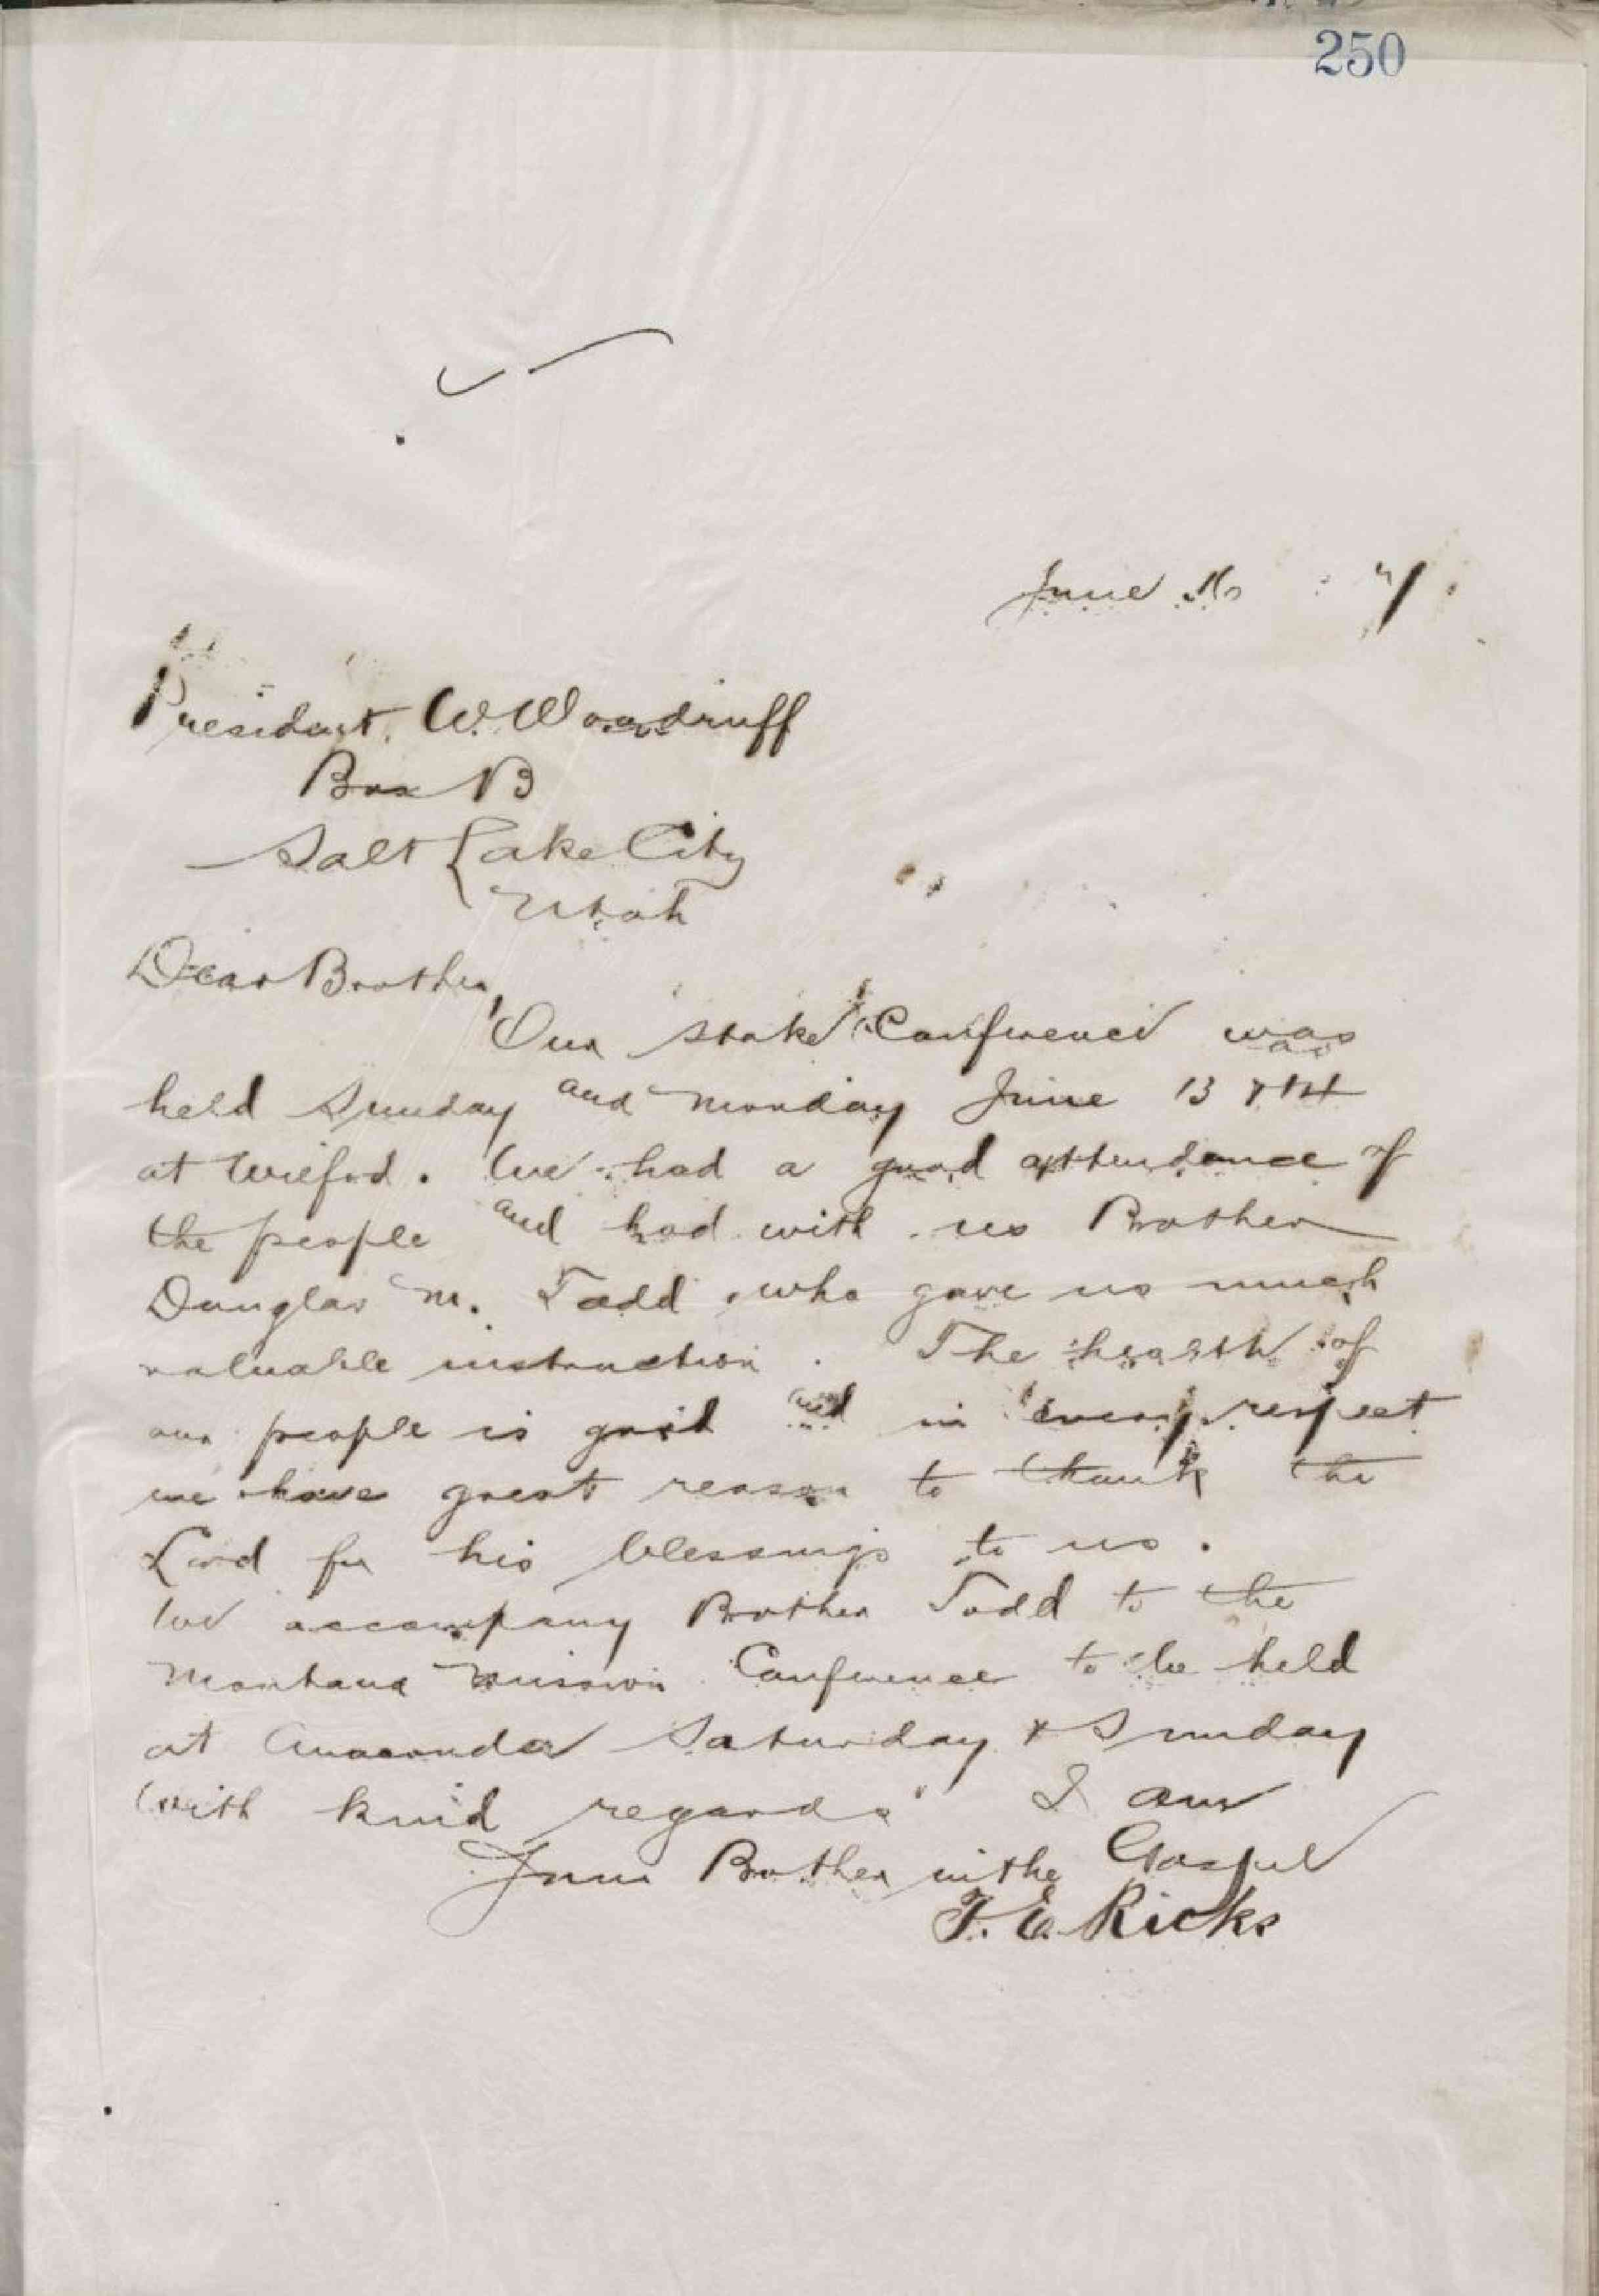 250
June 16 7
President. W. Woodruff
Box B
Salt Lake City
Utah
Dear Brother,
Our Stake Conference was
held Sunday and Monday June 13 & 14
at Wilford. We had a good attendance of
the people and had with us Brother
Douglas M. Todd who gave us much
valuable instruction. The health of
our people is good and in every respect
we have great reason to thank the
Lord for his blessings to us.
We accompany Brother Todd to the
Montana Mission Conference to be held
at Anaconda Saturday & Sunday
With kind regards I am
Your Brother in the Gospel
T. E. Ricks